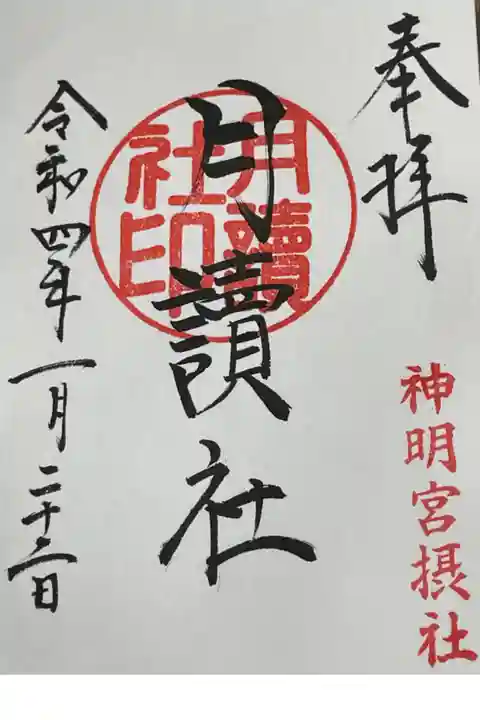 奉拝
神明宮摂社
月讀社
月讀社印
令和四年一月二十二日